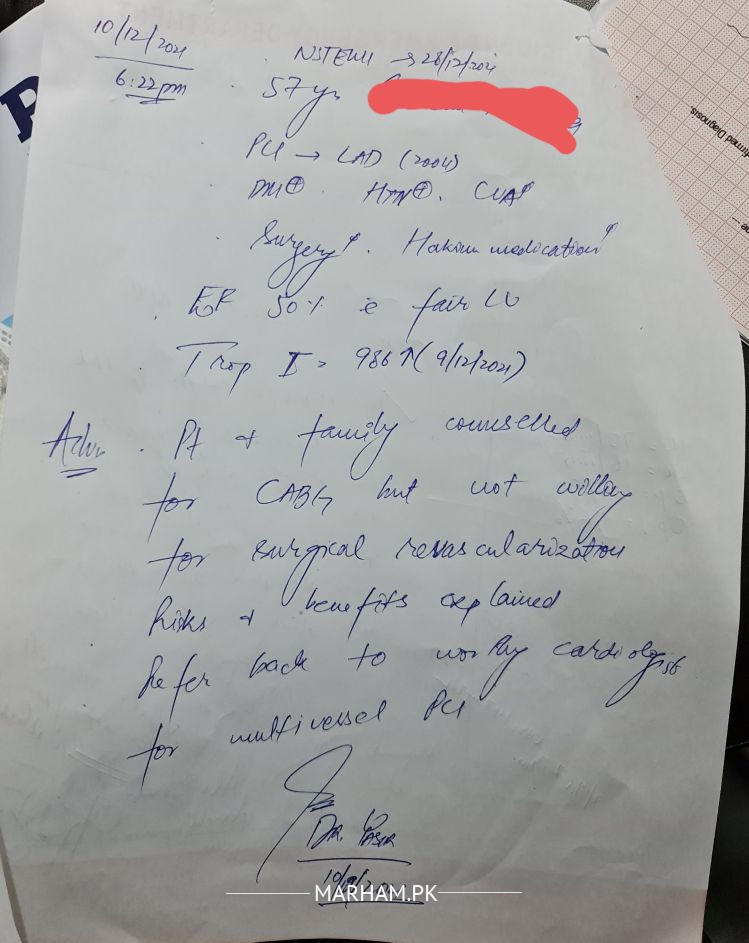 10/12/2021
6:22 pm
NSTEMI → 28/12/2021
57 yr
PCI → LAD (2004)
DM⊕. HTN⊕. CVA
Surgery. Hakim medication
EF 50% c fair LV
Trop I = 986↑ (9/12/2021)
Adv. Pt & family counselled
for CABG but not willing
for surgical revascularization
Risks & benefits explained
Refer back to worthy cardiologist
for multivessel PCI
DR. YASIR
MARHAM.PK
firmed Diagnosis